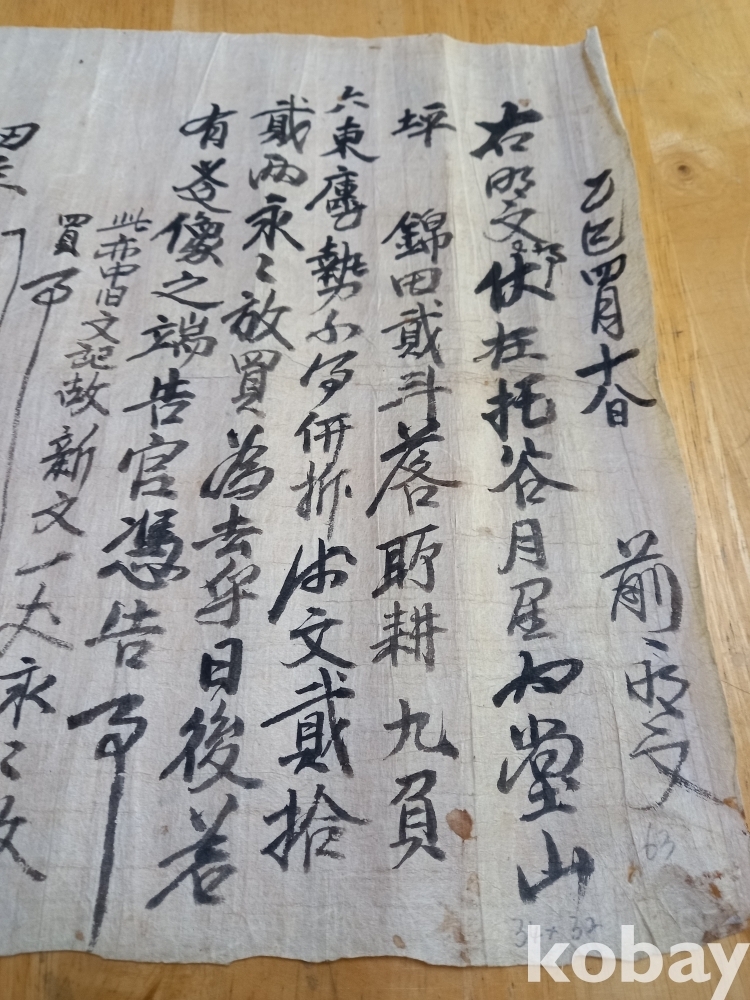 乙巳四月十八日 前明文
右明文 伏在托谷月星內堂山
坪 錦田貳斗落所耕九負
六束 勢不得併折価文貳拾
貳兩永〻放買為去乎日後若
有 像之端告官憑告事
此亦中旧文記故新文一丈永〻放
買事
田主
63
kobay